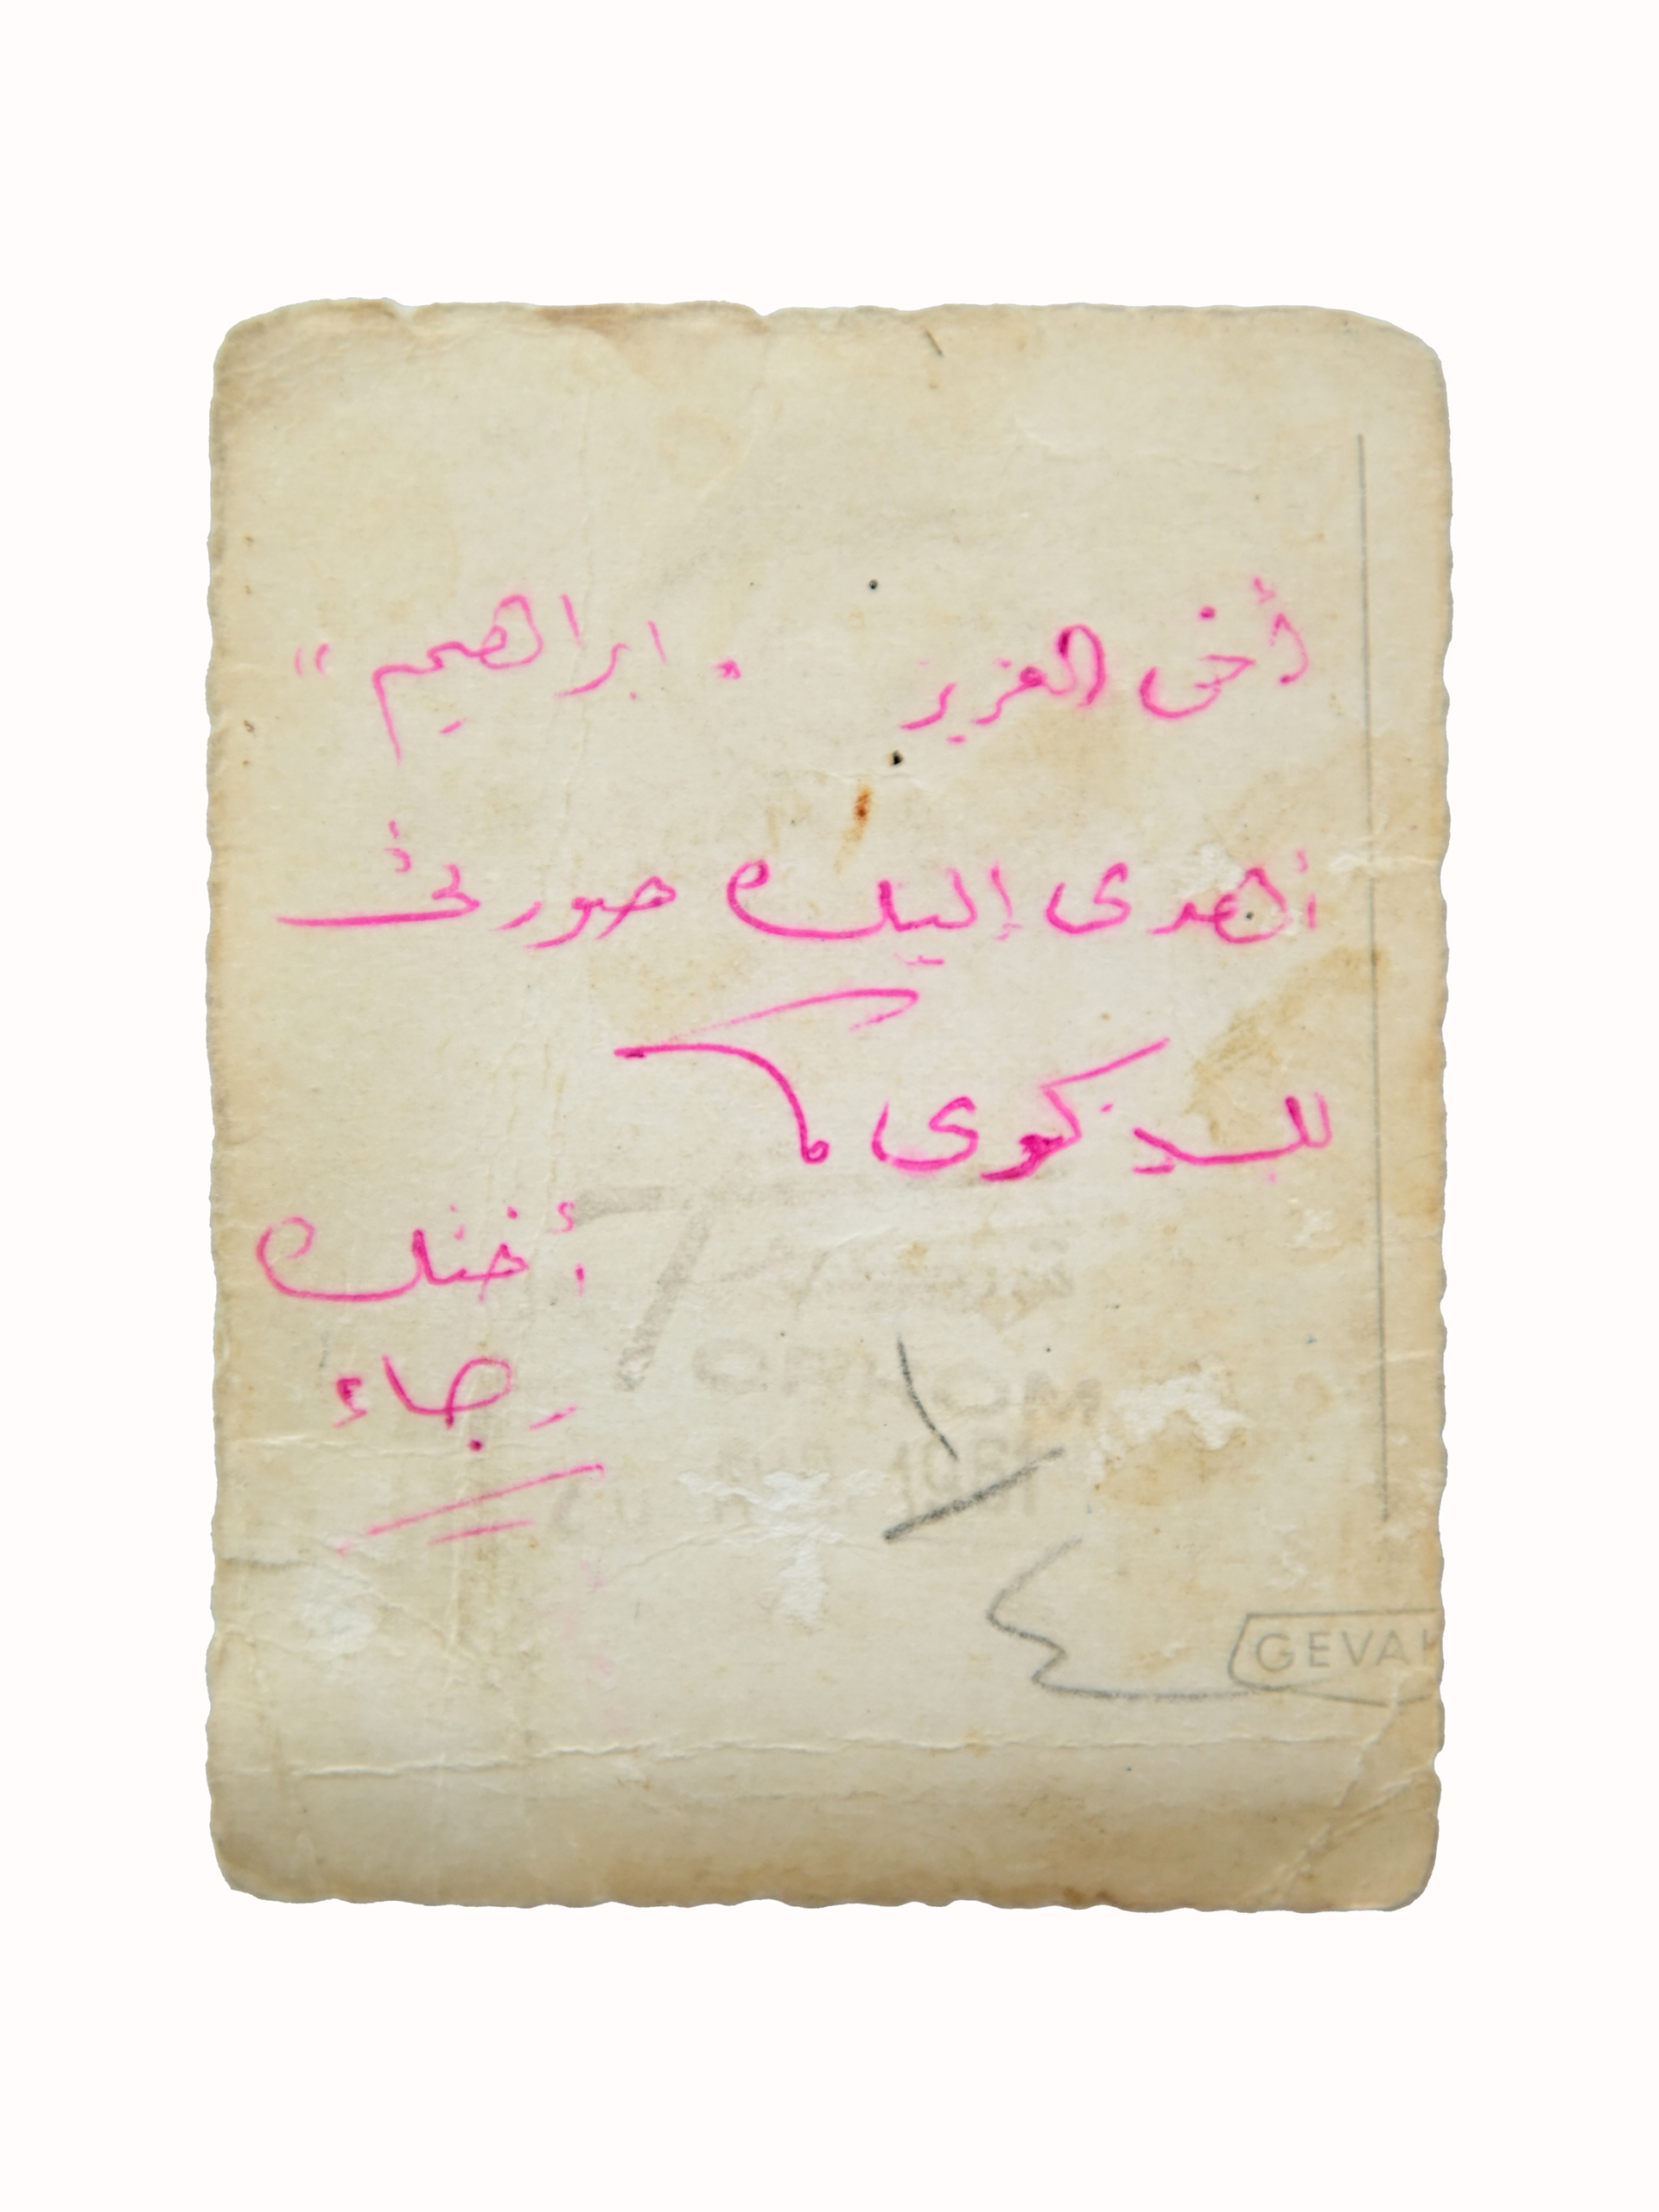 أخى العزيز " ابراهيم "
أهدى إليك صورتى
للذكرى
أختك
رجاء
1961
GEVA